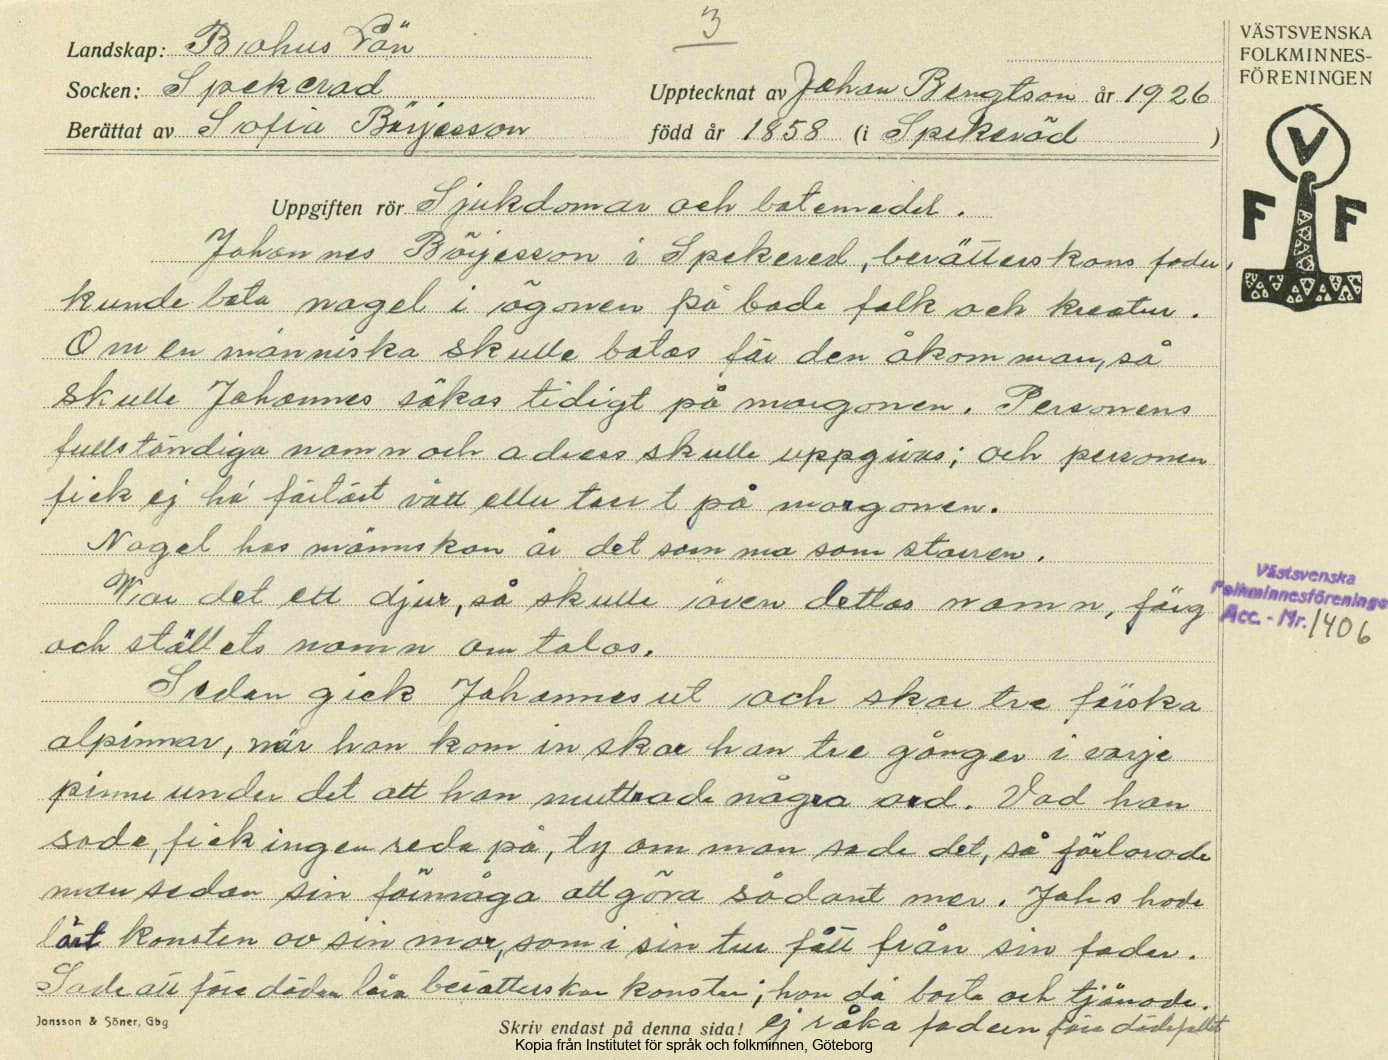 3
Landskap: Bohus Län
Socken: Spekeröd
Upptecknat av Johan Bengtson år 1926
Berättat av Sofia Börjesson
född år 1858 (i Spekeröd )
VÄSTSVENSKA
FOLKMINNES-
FÖRENINGEN
V
F F
Uppgiften rör Sjukdomar och botemedel.
Johannes Börjesson i Spekeröd, berätterskans fader,
kunde bota nagel i ögonen på både folk och kreatur.
Om en människa skulle botas för den åkomman, så
skulle Johannes sökas tidigt på morgonen. Personens
fullständiga namn och adress skulle uppgivas; och personen
fick ej ha förtärt vått eller torrt på morgonen.
Nagel hos männskan är det samma som starren.
War det ett djur, så skulle även dettas namn, färg
och ställets namn omtalas.
Västsvenska
Folkminnesföreningen
Acc. - Nr. 1406
Sedan gick Johannes ut och skar tre färska
alpinnar, när han kom in skar han tre gånger i varje
pinne under det att han muttrade några ord. Vad han
sade, fick ingen reda på, ty om man sade det, så förlorade
man sedan sin förmåga att göra sådant mer. Johs hade
lärt konsten av sin mor, som i sin tur fått från sin fader.
Sade att före döden lära berätterskan konsten; hon då borta och tjänade.
ej råka fadern före dödsfallet
Jonsson & Söner, Gbg
Skriv endast på denna sida!
Kopia från Institutet för språk och folkminnen, Göteborg